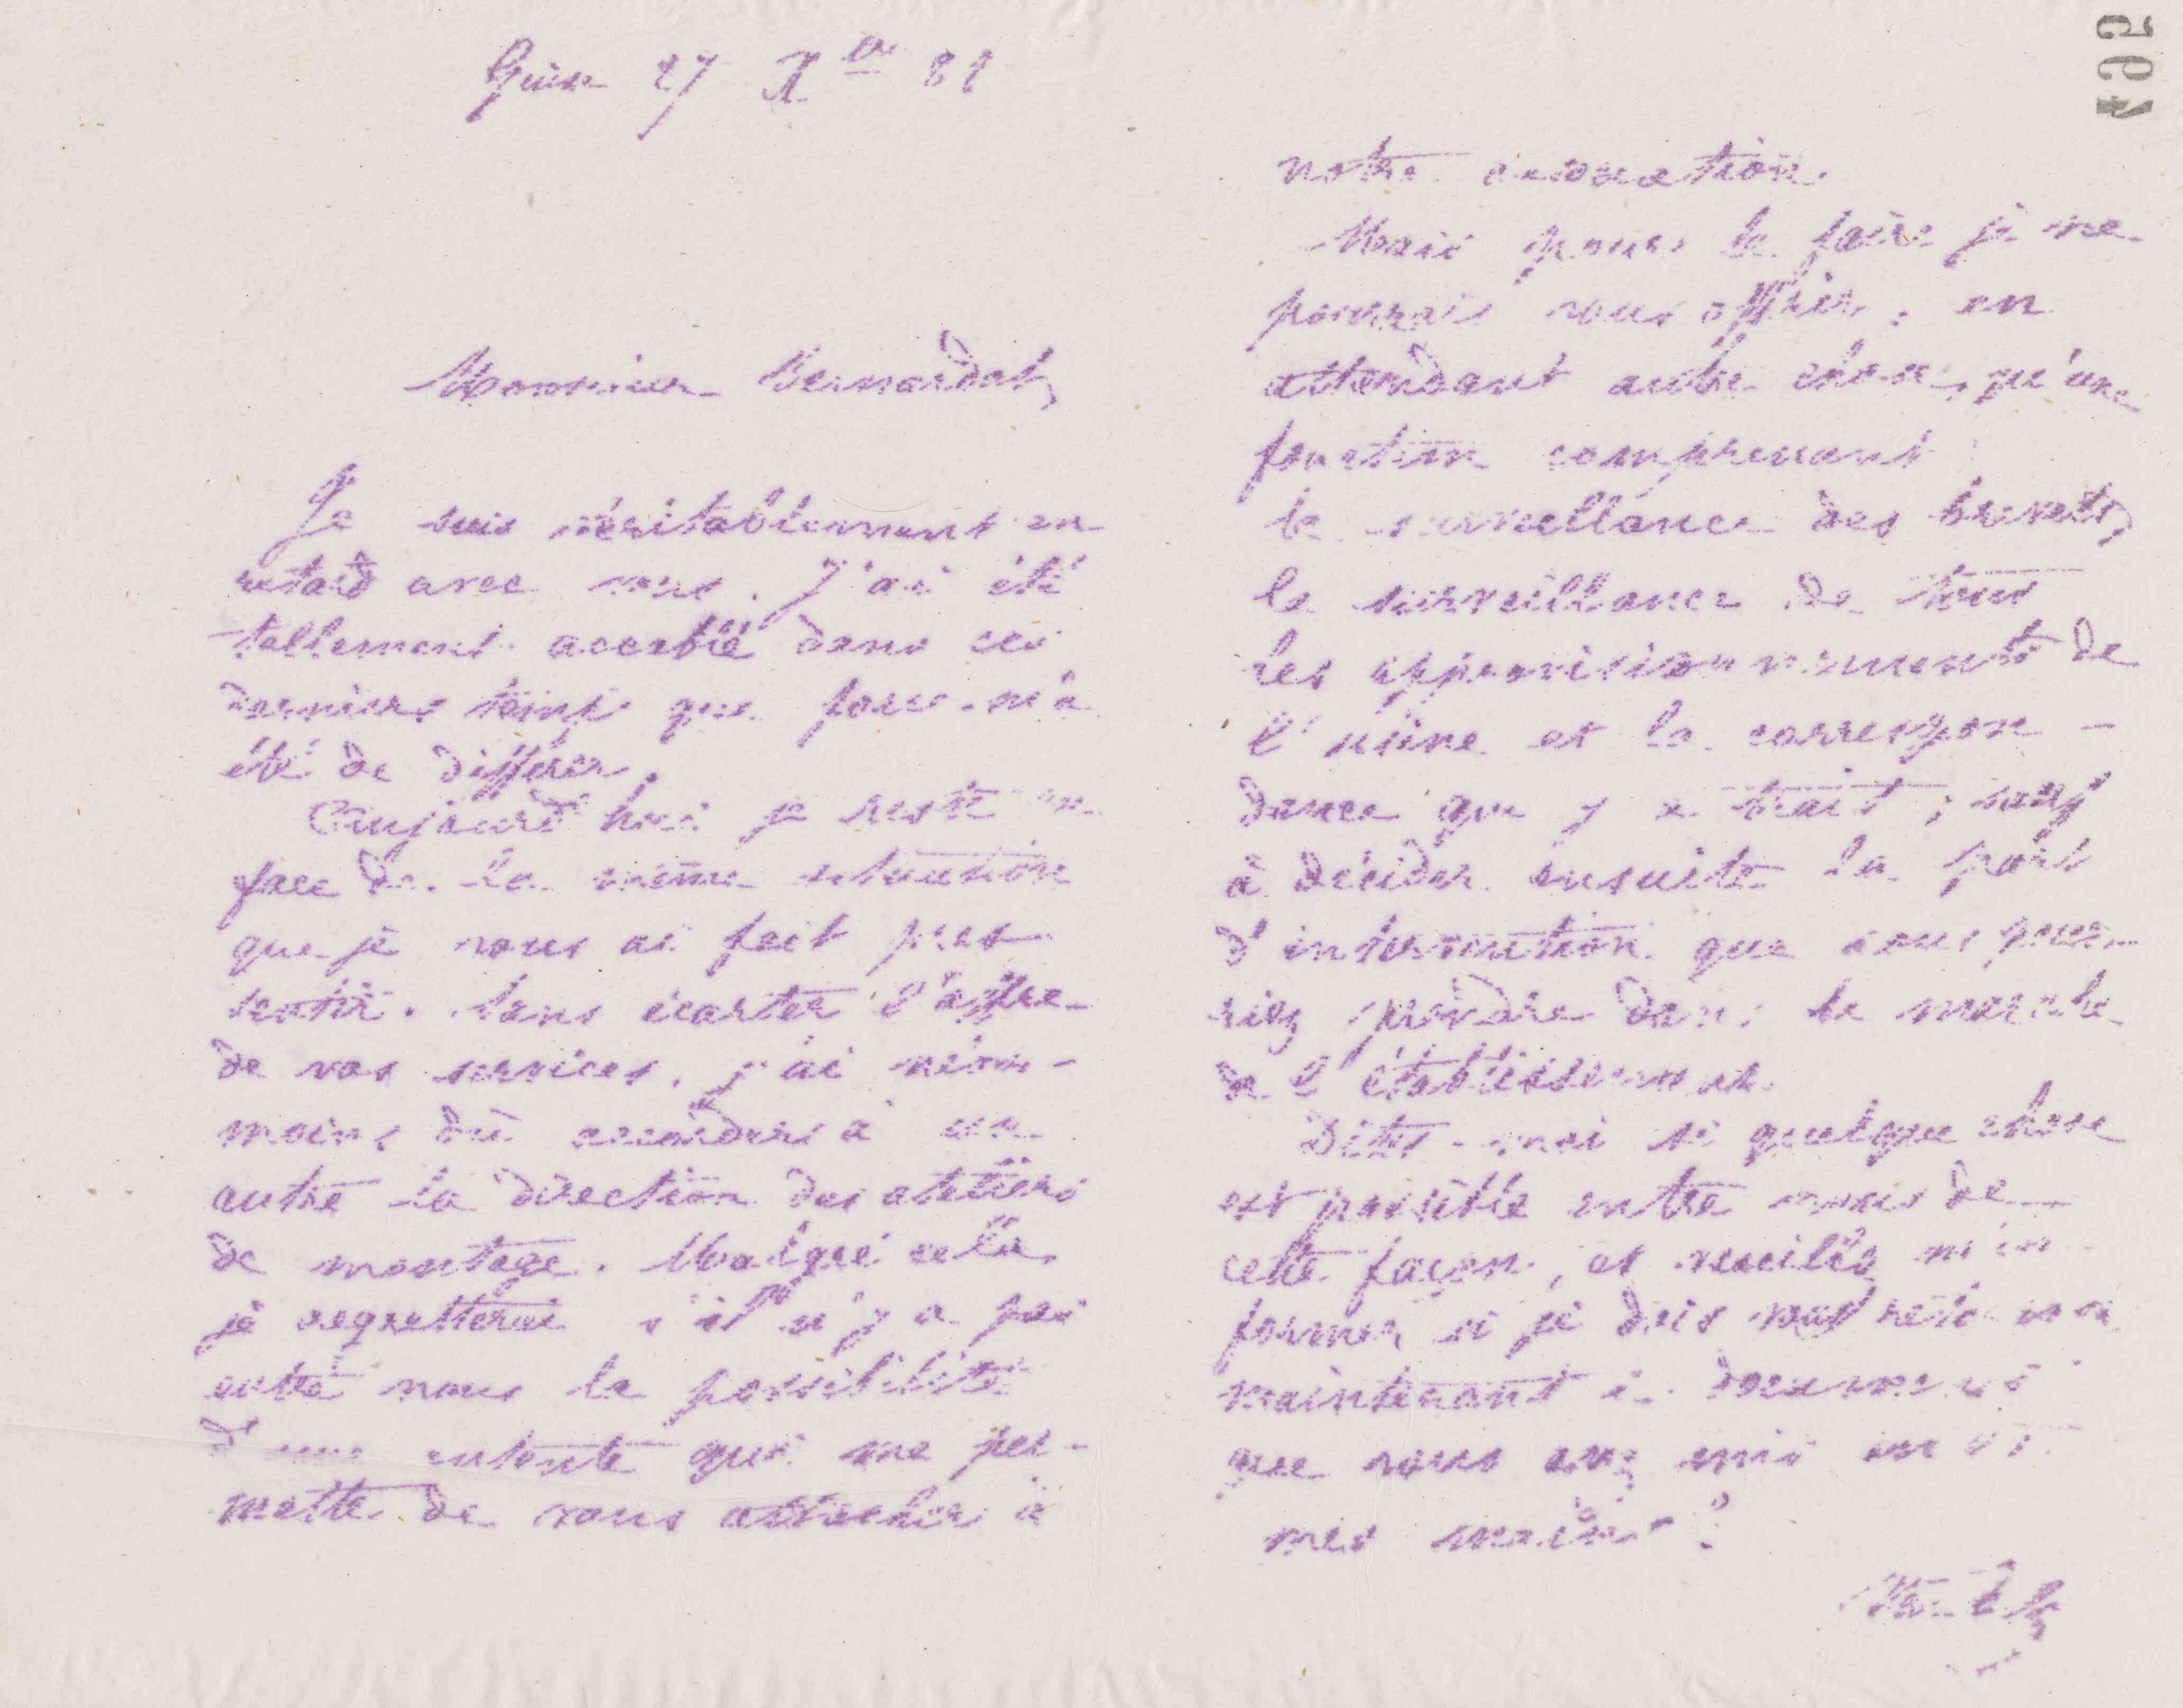 Guise 27 Xbre 81
Monsieur Bernardot,
Je suis véritablement en
retard avec vous. J'ai été
tellement accablé dans ces
derniers temps que force m'a
été de différer.
Aujourd'hui je reste en
face de la même situation
que je vous ai fait pres
sentir. Sans écarter l'offre
de vos services, j'ai néan-
moins dû accorder à un
autre la direction des ateliers
de montage. Malgré cela
je regretterai s'il n'y a pas
entre nous la possibilité
d'une entente qui me per-
mette de vous attacher à
notre association.
Mais pour le faire je ne
pourrais vous offrir, en
attendant autre chose, qu'une
fonction comprenant
la surveillance des brevets,
la surveillance de tous
les approvisionnements de
l'usine et la correspon-
dance que y a trait ; sauf
à décider ensuite la part
d'intervention que vous pour-
riez prendre dans la marche
de l'établissement.
Dites-moi si quelque chose
est possible entre nous de
cette façon, et veuillez m'in
former si je dois vous
maintenant documents
que vous avez mis entre
mes mains ?
495